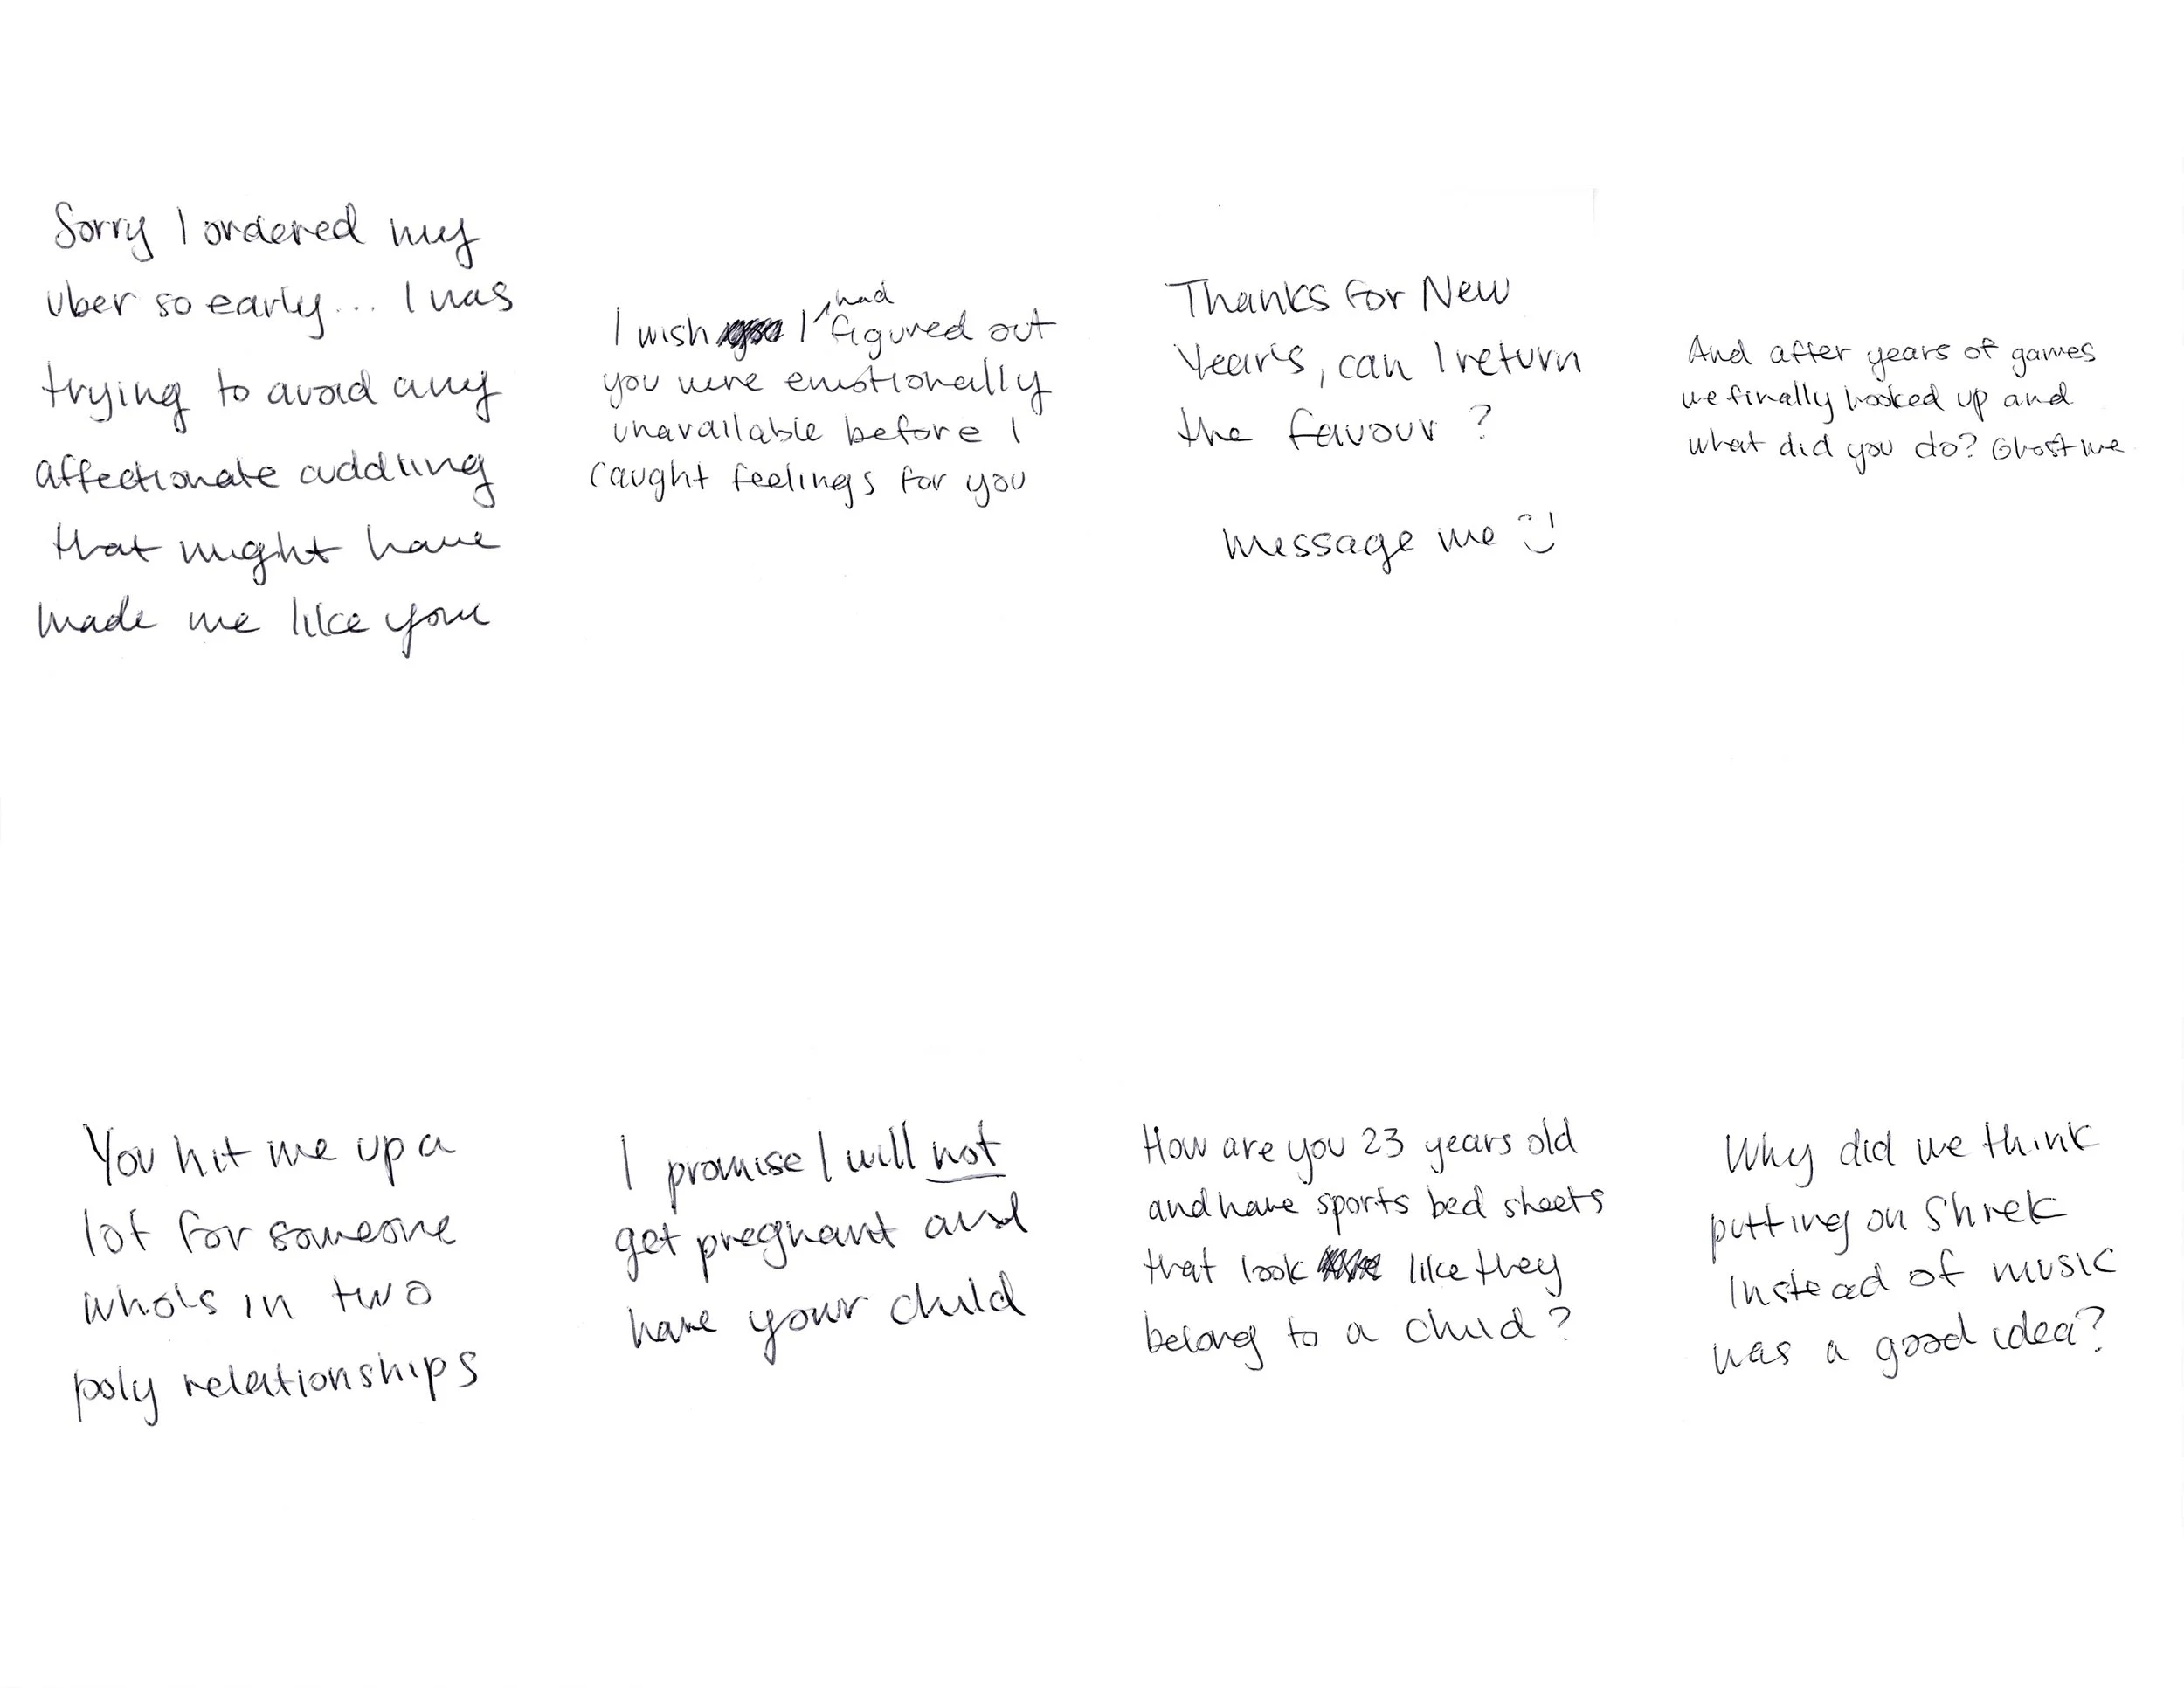 Sorry I ordered my
uber so early... I was
trying to avoid any
affectionate cuddling
that might have
made me like you
I wish I had figured out
you were emotionally
unavailable before I
caught feelings for you
Thanks for New
Year's, can I return
the favour?
message me :)
And after years of games
we finally hooked up and
what did you do? Ghost me
You hit me up a
lot for someone
who's in two
poly relationships
I promise I will not
get pregnant and
have your child
How are you 23 years old
and have sports bed sheets
that look like they
belong to a child?
Why did we think
putting on Shrek
instead of music
was a good idea?